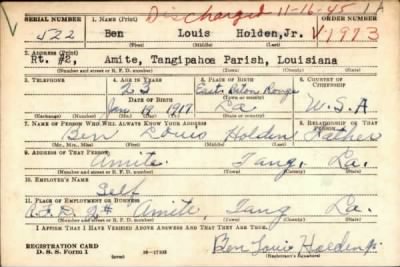 Discharged 11-16-45
SERIAL NUMBER 1. NAME (Print) ORDER NUMBER
522 Ben Louis Holden, Jr. V1973
(First) (Middle) (Last)
2. ADDRESS (Print)
Rt. #2, Amite, Tangipahoa Parish, Louisiana
(Number and street or R. F. D. number) (Town) (County) (State)
3. TELEPHONE 4. AGE IN YEARS 5. PLACE OF BIRTH 6. COUNTRY OF CITIZENSHIP
23 East Baton Rouge
DATE OF BIRTH (Town or county)
Jan 1917 La. U.S.A
(Exchange) (Number) (Mo.) (Day) (Yr.) (State or country)
7. NAME OF PERSON WHO WILL ALWAYS KNOW YOUR ADDRESS 8. RELATIONSHIP OF THAT PERSON
Ben Louis Holden Father
(Mr., Mrs., Miss) (First) (Middle) (Last)
9. ADDRESS OF THAT PERSON
Amite Tang. La.
(Number and street or R. F. D. number) (Town) (County) (State)
10. EMPLOYER'S NAME
Self
11. PLACE OF EMPLOYMENT OR BUSINESS
R.F.D. 2# Amite, Tang La.
(Number and street or R. F. D. number) (Town) (County) (State)
I AFFIRM THAT I HAVE VERIFIED ABOVE ANSWERS AND THAT THEY ARE TRUE.
REGISTRATION CARD
D. S. S. Form 1 (over) Ben Louis Holden Jr.
(Registrant's Signature)